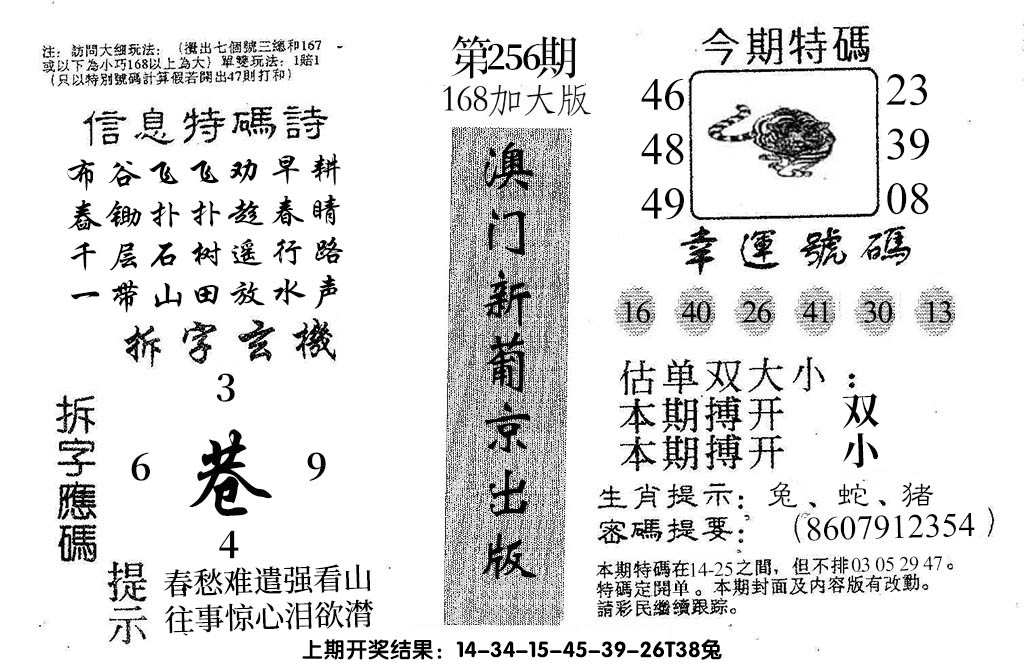 注：訪問大细玩法：（攪出七個號三總和167
或以下為小巧168以上為大）單雙玩法：1賠1
（只以特別號碼計算假若開出47則打和）
信息特碼詩
布谷飞飞劝早耕
舂锄扑扑趁春晴
千层石树遥行路
一带山田放水声
拆字玄機
3
6 巷 9
4
拆字應碼
提示
春愁难遣强看山
往事惊心泪欲潸
第256期
168加大版
澳门新葡京出版
今期特碼
46 23
48 39
49 08
幸運號碼
16 40 26 41 30 13
估单双大小：
本期搏开 双
本期搏开 小
生肖提示：兔、蛇、猪
密碼提要：（8607912354）
本期特碼在14-25之間，但不排03 05 29 47。
特碼定開单。本期封面及内容版有改動。
請彩民繼續跟踪。
上期开奖结果：14-34-15-45-39-26T38兔